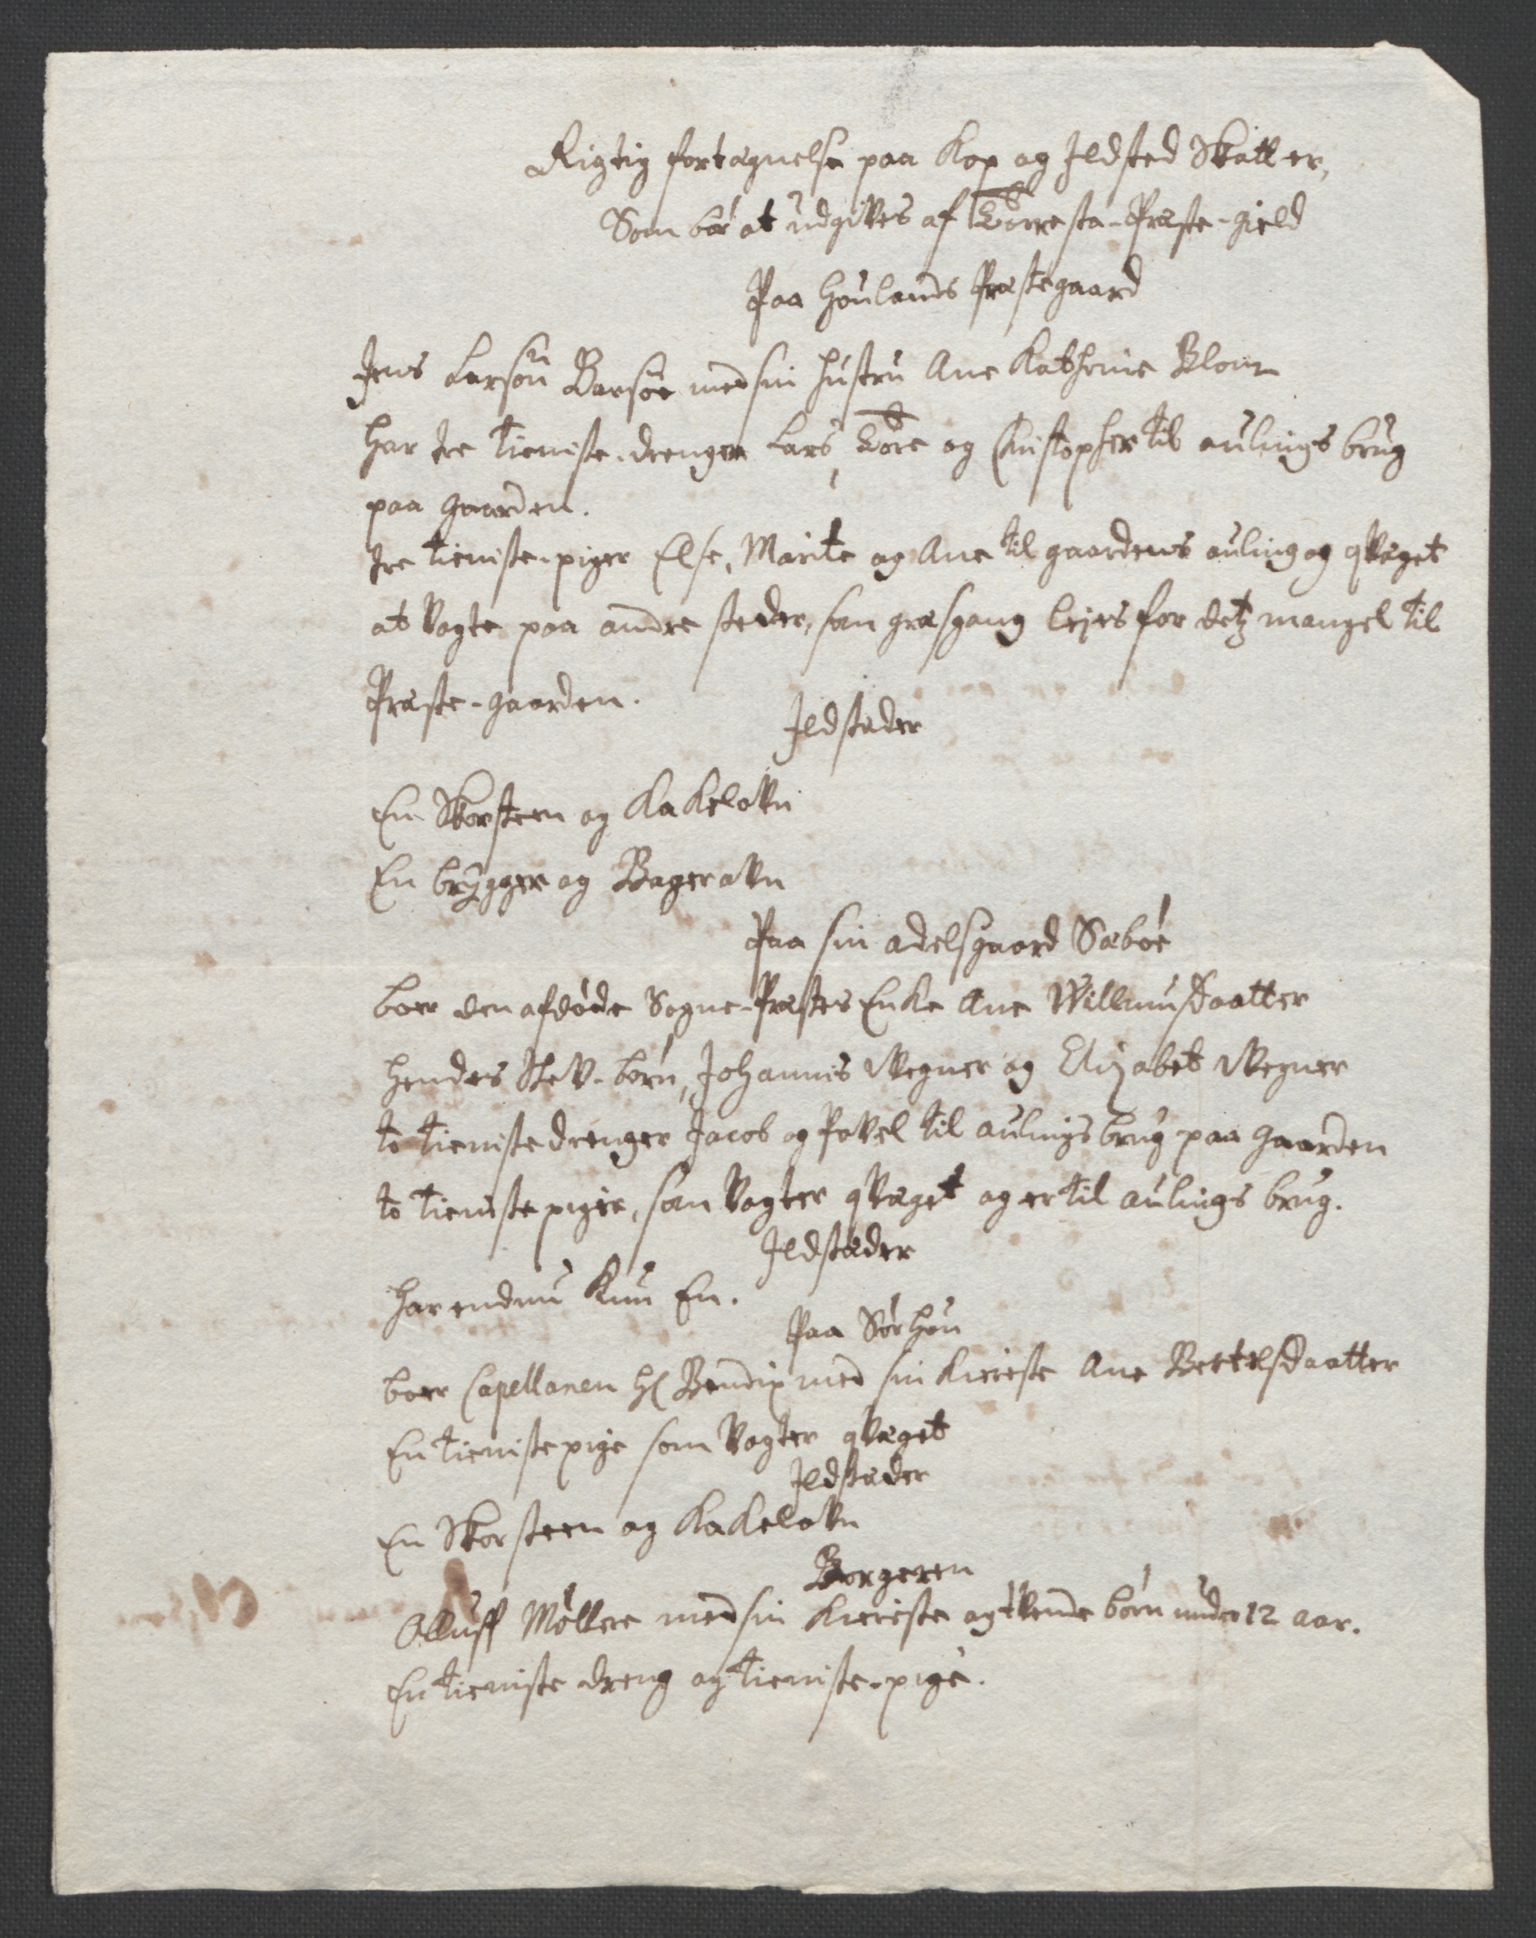 Rigtig fortegnelse paa Kop og Jldsted Skatter,
Som bør at udgiVes af Torresta-Præste-gield
Paa Houlands Præstegaard
Jens Larsøn Barsøe med sin hustru Ane Kathrine Blom
har tre tieniste-drenger Lars, Tore og Christopher til aulings brug
paa gaarden.
tre tieniste-piger Else, Marite og Ane til gaardens auling og qVæget
at Vogte paa andre steder, som græsgang lejes for detz mangel til
Præste-gaarden.
Jldstæder
En Skorsteen og KakeloVn
En brygger og BageroVn
Paa sin adelsgaard Sæbøe
boer den afdøde Sogne-Præstes Enke Ane Willumsdaatter
hendes SteV-børn, Johannis Wegner og Elizabet Wegner
to tieniste drenger Jacob og PoVel til aulings brug paa gaarden
to tieniste piger, som Vogter qVæget og er til aulings brug.
Jldstæder
har endnu Kun En.
Paa Sørhou
boer Capellanen Hr Bendix med sin Kiereste Ane Bertelsdaatter
En tieniste pige som Vogter qVæget
Jldstæder
En Skorsteen og KakeloVn
Borgeren
Olluff Møller med sin Kiereste og tVende børn under 12 aar.
En tieniste dreng og tieniste-pige.